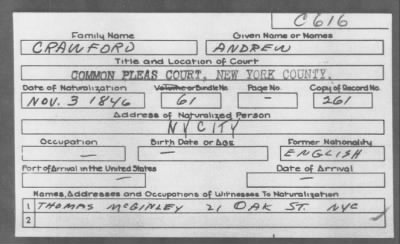 C616
Family Name Given Name or Names
CRAWFORD ANDREW
Title and Location of Court
COMMON PLEAS COURT, NEW YORK COUNTY.
Date of Naturalization Volume or Bundle No. Page No. Copy of Record No.
NOV. 3 1846 61 - 261
Address of Naturalized Person
NY CITY
Occupation Birth Date or Age Former Nationality
— — ENGLISH
Port of Arrival in the United States Date of Arrival
— —
Names, Addresses and Occupations of Witnesses To Naturalization
1 THOMAS MCGINLEY 21 OAK ST. NYC
2